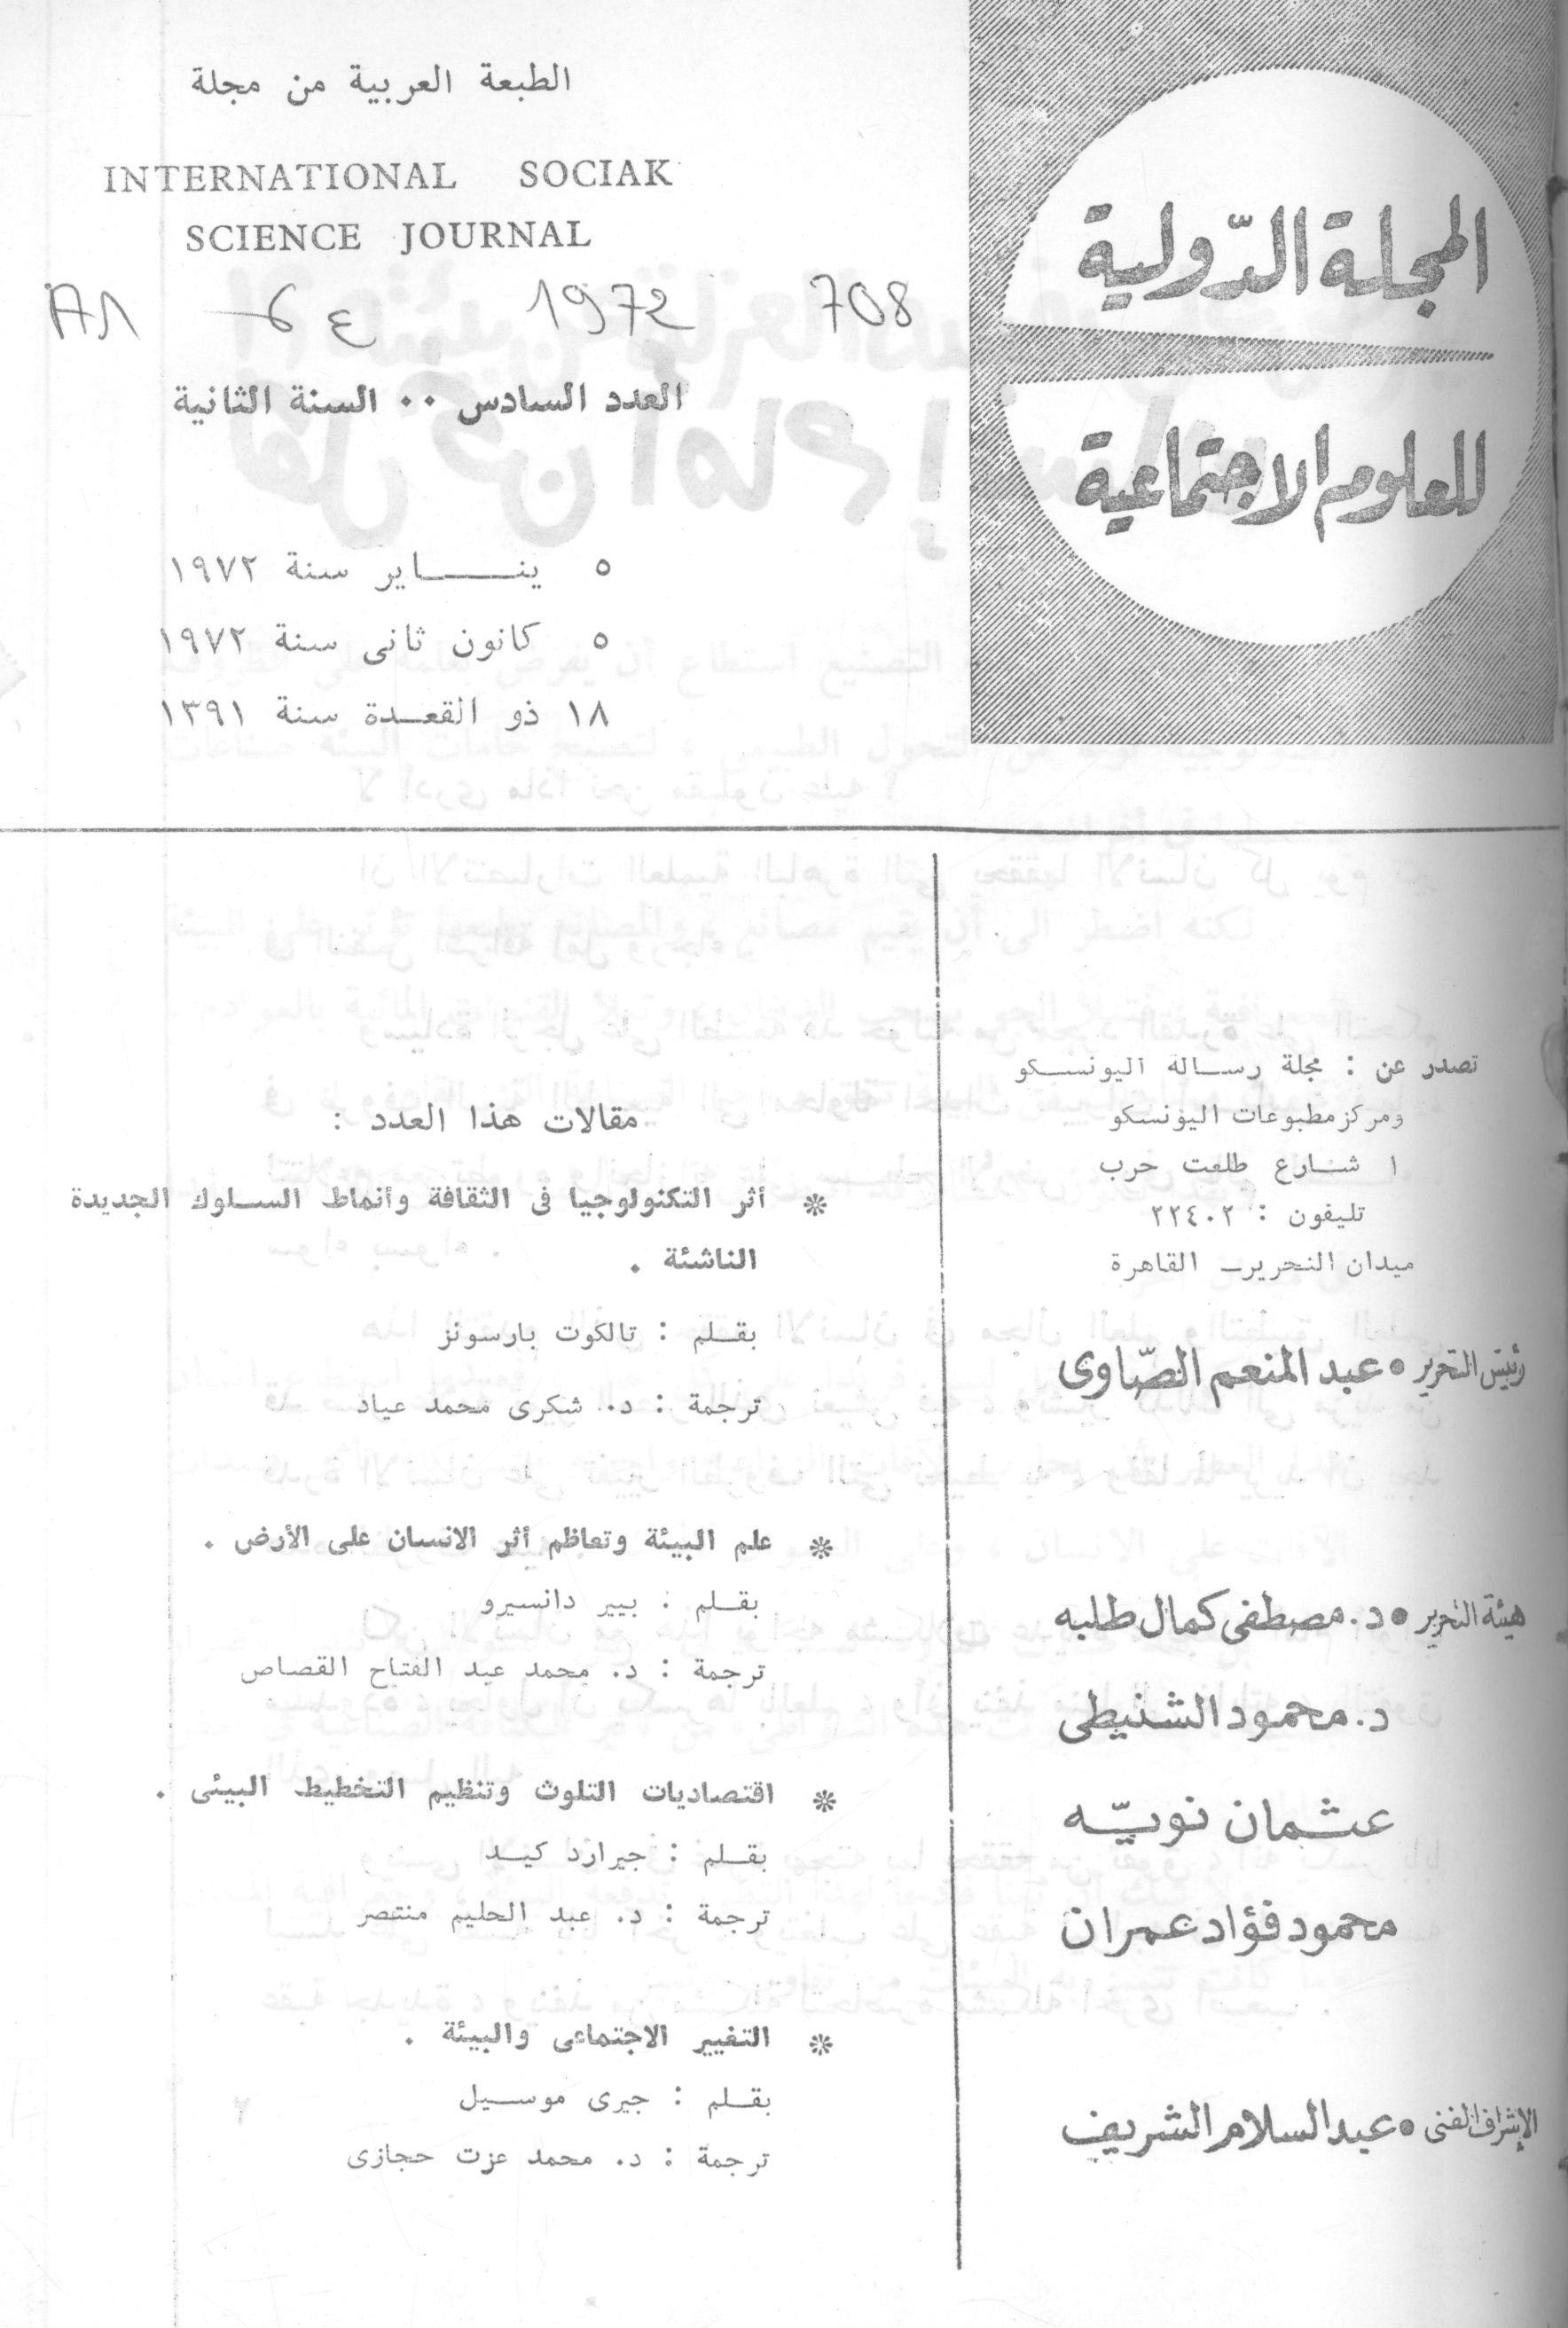 المجلة الدّولية
للعلوم الاجتماعية
الطبعة العربية من مجلة
INTERNATIONAL SOCIAK
SCIENCE JOURNAL
1972 708
العدد السادس ٠٠ السنة الثانية
٥ ينـــــاير سنة ١٩٧٢
٥ كانون ثانى سنة ١٩٧٢
١٨ ذو القعـدة سنة ١٣٩١
تصدر عن : مجلة رسـالة اليونسـكو
ومركز مطبوعات اليونسكو
١ شـارع طلعت حرب
تليفون : ٢٢٤٠٢
ميدان التحرير ــ القاهرة
رئيس التحرير • عبد المنعم الصّاوى
هيئة التحرير • د. مصطفى كمال طلبه
د. محمود الشنيطى
عثمان نويّه
محمود فؤاد عمران
الإشراف الفنى • عبد السلام الشريف
مقالات هذا العدد :
* أثر التكنولوجيا فى الثقافة وأنماط السـلوك الجديدة
الناشئة .
بقـلم : تالكوت بارسونز
ترجمة : د. شكرى محمد عياد
* علم البيئة وتعاظم أثر الانسان على الأرض .
بقـلم : بيير دانسيرو
ترجمة : د. محمد عبد الفتاح القصاص
* اقتصاديات التلوث وتنظيم التخطيط البيئى .
بقـلم : جيرارد كيـد
ترجمة : د. عبد الحليم منتصر
* التغيير الاجتماعى والبيئة .
بقـلم : جيرى موسـيل
ترجمة : د. محمد عزت حجازى